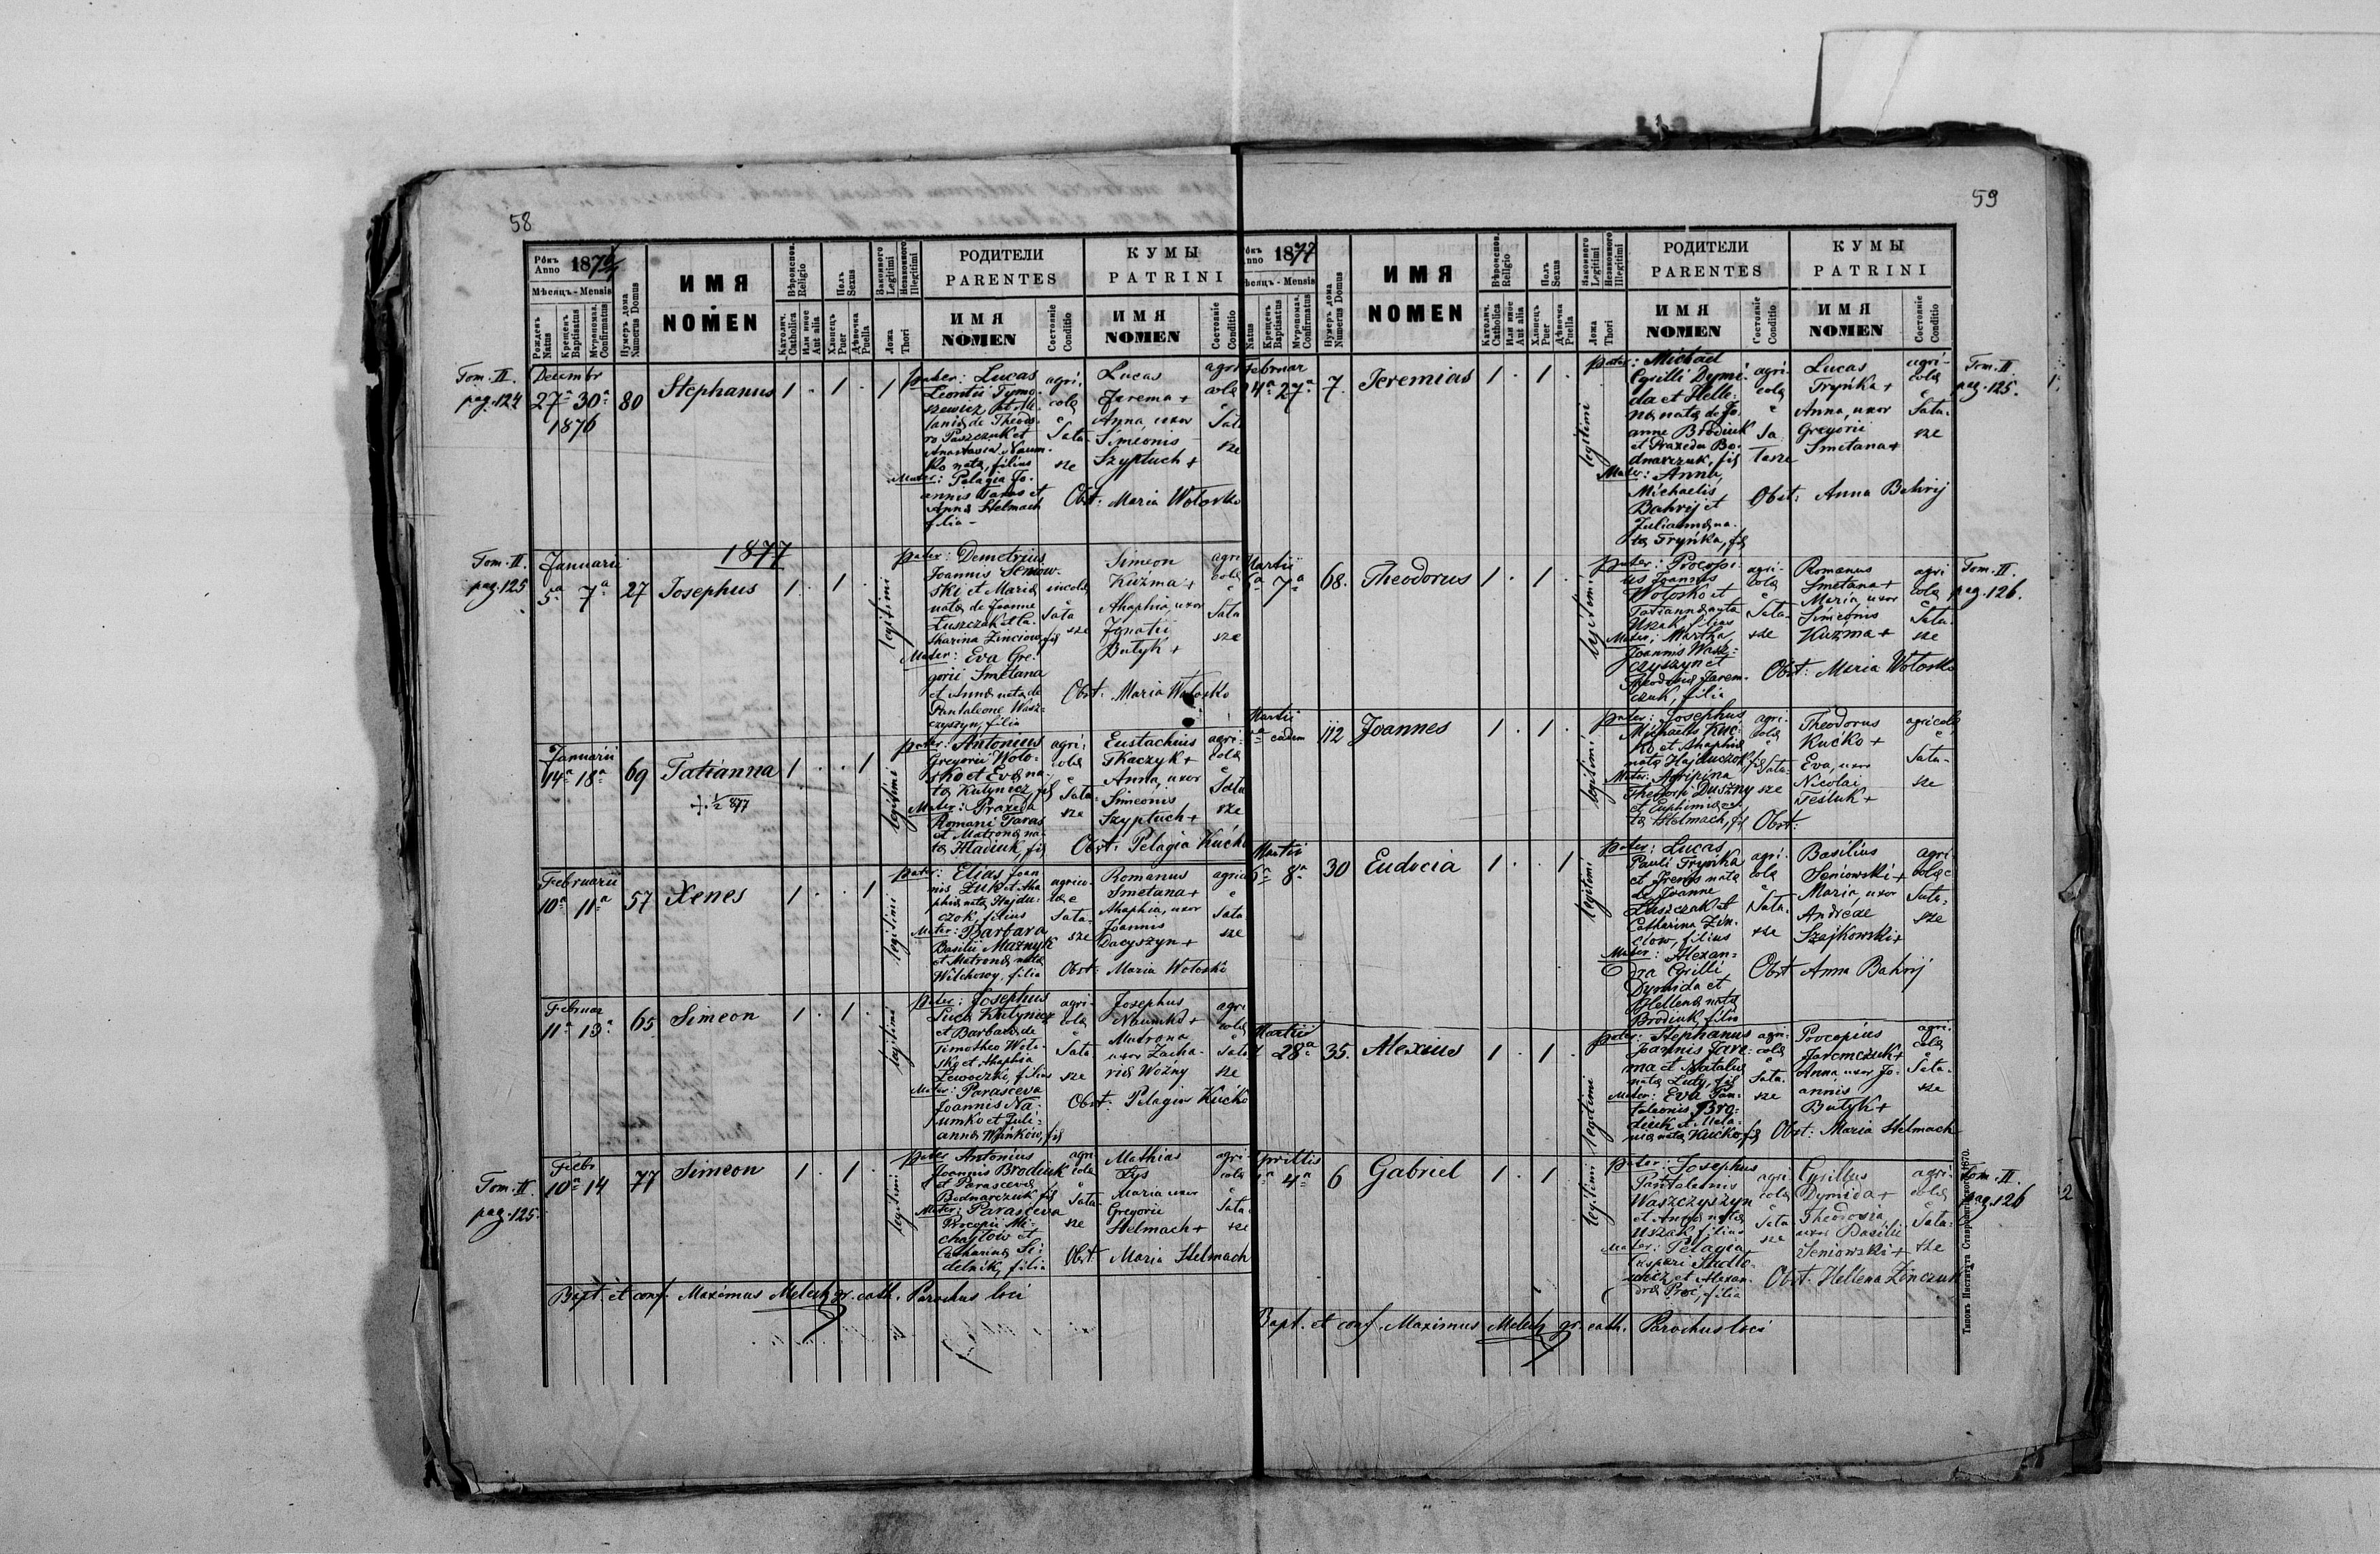 58
Рôкъ Anno 1876/7
Мѣсяцъ - Mensis
Рожденъ Natus
Крещенъ Baptisatus
Мѵропомаз. Confirmatus
Нумеръ дома Numerus Domus
ИМЯ
NOMEN
Вѣроисповѣд. Religio
Католич. Catholica
Или иное Aut alia
Полъ Sexus
Хлопецъ Puer
Дѣвочка Puella
Законного Legitimi
Незаконного Illegitimi
Ложа Thori
РОДИТЕЛИ
PARENTES
ИМЯ
NOMEN
Состоянiе Conditio
КУМЫ
PATRINI
ИМЯ
NOMEN
Состоянiе Conditio
Tom. II.
pag. 124
Decembr
27ª 30ª
1876
80
Stephanus
1 . 1 . 1
pater: Lucas
Leontii Tymo-
szewicz et Me-
laniæ de Theodo-
ro Paszczuk et
Anastasia Naum-
ko nata, filius
Mater: Pelagia Jo-
annis Taras et
Anna Stelmach
filia -
agri-
colæ
e
Sata-
sze
Lucas
Jarema +
Anna, uxor
Simeonis
Szyptuch +
agri
colæ
Sata
sze
Obst: Maria Wołosko
1877
Tom. II.
pag. 125
Januarii
5ª 7ª
27
Josephus
1 . 1 .
legitimi
pater: Demetrius
Joannis Seniow-
ski et Mariæ
nata de Joanne
Łuszczak et Ca-
tharina Zinciow, fil
Mater: Eva Gre-
gorii Smetana
et Annæ nata de
Pantaleone Wasz-
czyszyn, filia
incolæ
e
Sata
sze
Simeon
Kuźma +
Ahaphia, uxor
Ignatii
Butyk +
agri
colæ
e
Sata
sze
Obst: Maria Wołosko
Januarii
14ª 18ª
69
Tatianna
+ 1/2 877
1 . . 1
legitimi
pater: Antonius
Gregorii Woło-
sko et Evæ na-
ta Kutynicz, fil
Mater: Praxeda
Romani Taras
et Matronæ na-
ta Hladiuk, fil
agri-
colæ
e
Sata-
sze
Eustachius
Tkaczyk +
Anna, uxor
Simeonis
Szyptuch +
agri-
colæ
e
Sata
sze
Obst: Pelagia Kućko
Februarii
10ª 11ª
57
Xenes
1 . . 1
legitimi
pater: Elias Joan
nis Żuk et Aha
phiæ nata Hajdu-
czok, filius
Mater: Barbara
Basilii Maznyk
et Matronæ nata
Wilchowy, filia
agrico-
læ e
Sata-
sze
Romanus
Smetana +
Ahaphia, uxor
Joannis
Dacyszyn +
agrico
e
Sata
sze
Obst: Maria Wołosko
Februar
11ª 13ª
65
Simeon
1 . 1 .
legitimi
pater: Josephus
Luca Kutynicz
et Barbaræ de
Timotheo Woło-
sko et Ahaphia
Lewoczko, filius
Mater: Parasceva
Joannis Na-
umko et Juli-
annæ Wańków, fil
agri-
colæ
e
Sata
sze
Josephus
Naumko +
Matrona
uxor Zacha-
riæ Woźny
agri
colæ
e
Sata
sze
Obst: Pelagia Kućko
Tom. II.
pag. 125.
Febr
10ª 14
77
Simeon
1 . 1 .
legitimi
pater Antonius
Joannis Brodiuk
et Parascevæ
Bodnarczuk fil
Mater: Parasceva
Procopii Mi-
chajłow et
Catharina Si-
delnik, filia
agri
colæ
e
Sata-
sze
Mathias
Fys
Maria uxor
Gregorii
Stelmach +
agri-
colæ
e
Sata-
sze
Obst: Maria Stelmach
Bapt. et conf. Maximus Melech gr. cath. Parochus loci
59
Рôкъ Anno 1877
Мѣсяцъ - Mensis
Natus
Крещенъ Baptisatus
Мѵропомаз. Confirmatus
Нумеръ дома Numerus Domus
ИМЯ
NOMEN
Вѣроисповѣд. Religio
Католич. Catholica
Или иное Aut alia
Полъ Sexus
Хлопецъ Puer
Дѣвочка Puella
Законного Legitimi
Незаконного Illegitimi
Ложа Thori
РОДИТЕЛИ
PARENTES
ИМЯ
NOMEN
Состоянiе Conditio
КУМЫ
PATRINI
ИМЯ
NOMEN
Состоянiе Conditio
Februar
14ª 27ª
7.
Jeremias
1 . 1 .
legitimi
pater: Michael
Cyrilli Dymi-
da et Helle-
næ nata de Jo-
anne Brodiuk
et Praxeda Bo-
dnarczuk, fil
Mater: Anna,
Michaelis
Bahrij et
Juliannæ na-
ta Tryńka, fil
agri-
colæ
e
Sa-
tasze
Lucas
Tryńka +
Anna, uxor
Gregorii
Smetana +
agri-
colæ
e
Sata-
sze
Obst: Anna Bahrij
Tom. II.
pag. 125.
Martii
7ª
68.
Theodorus
1 . 1 .
legitimi
pater: Procopi-
us Joannis
Wołosko et
Tatiannæ nata
Uszak filius
Mater: Martha,
Joannis Wasz-
czyszyn et
Theodosia Jarem-
czuk, filia
agri-
colæ
e
Sata-
sze
Romanus
Smetana +
Maria uxor
Simeonis
Kuźma +
agri
colæ
e
Sata-
sze
Obst: Maria Wołosko
Tom. II.
pag. 126.
Martii
eadem
112
Joannes
1 . 1 .
legitimi
pater: Josephus
Michaelis Kuć-
ko et Ahaphiæ
nata Hajduczok fil
Mater: Agripina
Theodori Duszny
et Euphimia na-
ta Stelmach, fil
agri-
colæ
e
Sata-
sze
Theodorus
Kućko +
Eva, uxor
Nicolai
Tesluk +
agricolæ
e
Sata-
sze
Obst:
Martii
6ª 8ª
30
Eudocia
1 . . 1
legitimi
pater: Lucas
Pauli Tryńka
et Irenis nata
de Joanne
Łuszczak et
Catharina Zin-
ciow, filius
Mater: Alexan-
dra Cyrilli
Dymida et
Hellenæ nata
Brodiuk filia
agri-
colæ
e
Sata-
sze
Basilius
Seniowski +
Maria, uxor
Andreae
Szajkowski +
agri
colæ e
Sata-
sze
Obst Anna Bahrij
Martii
28ª
35.
Alexius
1 . 1 .
legitimi
pater: Stephanus
Joannis Jare-
ma et Nataliæ
nata Luty, fil
Mater: Eva Pan-
taleonis Bro-
diuk et Mela-
niæ nata Kućko, fil
agri-
colæ
e
Sata-
sze
Procopius
Jaremczuk +
Anna uxor Jo-
annis
Butyk +
agri-
colæ
e
Sata-
sze
Obst: Maria Stelmach
Aprillis
4ª
6
Gabriel
1 . 1 .
legitimi
pater: Josephus
Pantaleonis
Waszczyszyn
et Annæ nata
Uszak filius
Mater: Pelagia
Caspari Sadło-
wicz et Alexan-
dra Proć, filia
agri
colæ
e
Sata
sze
Cyrillus
Dymida +
Theodosia
uxor Basilii
Seniowski +
agri-
colæ
e
Sata-
sze
Obst: Hellena Zinczuk
Tom. II.
pag. 126
2
Bapt. et conf. Maximus Melech gr. cath. Parochus loci
Типомъ Института Ставропигійского 1870.